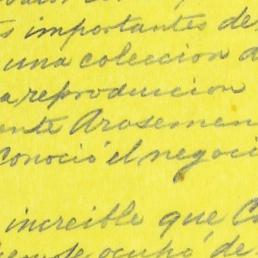 s importantes de
una coleccion d
a reproduccion
ente Arosemen
conoció el negoci
increible que C
se ocupó de